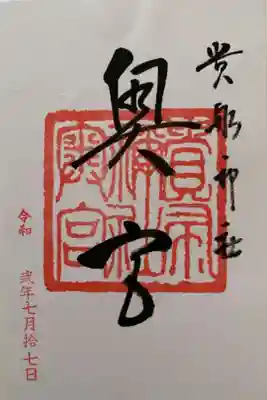 貴船神社
奥宮
貴船神社奥宮
令和
弐年七月拾七日